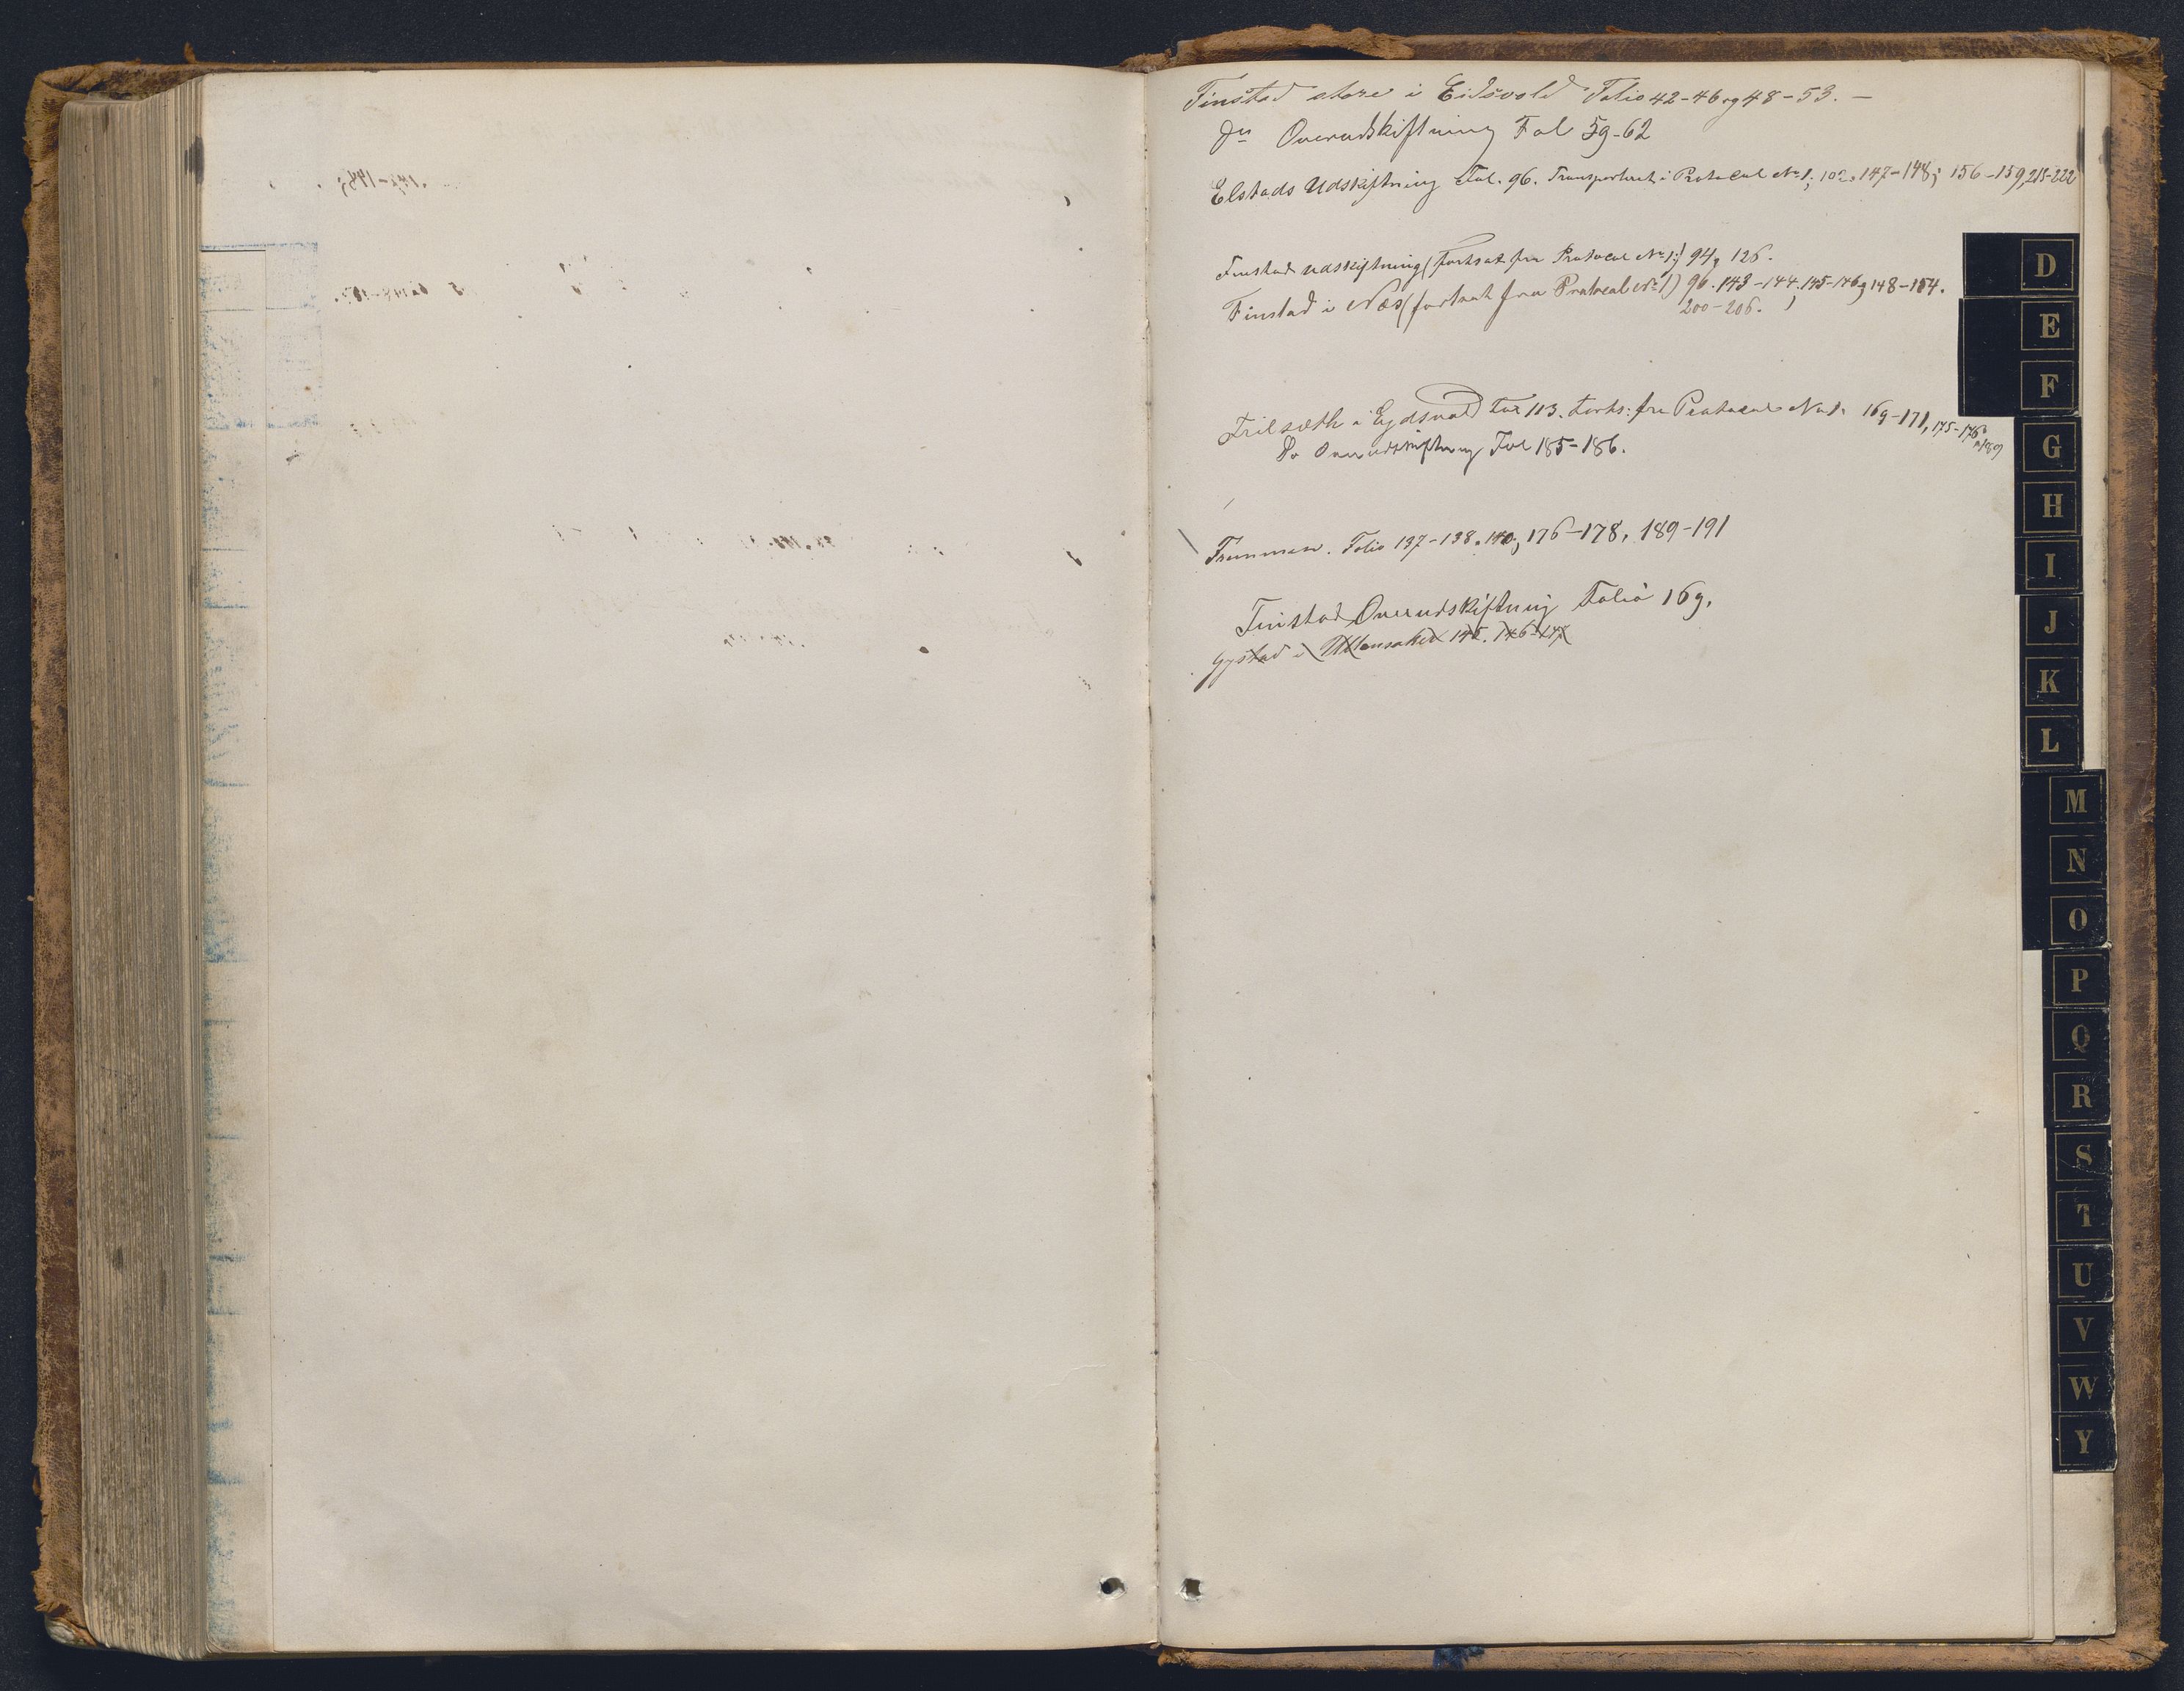 Finstad store i Eidsvold Folio 42-46 og 48-53. -
do Overudskiftning Fol 59-62
Elstads Udskiftning Fol. 96. Transporteret i Protocol No 1; 102, 147-148; 156-159, 215-222
Finstad udskiftning (fortsat fra Protocol No 1) 94, 126.
Finstad i Næs (fortsat fra Protocol No 1) 96. 143-144. 145-146, 148-154.
200-206.
Frilseth i Eydsvold Fol 113. Forts: fra Protocol No 1. 169-171, 175-176,
189
Do Overudskiftning Fol 185-186.
Folio 137-138. 140, 176-178, 189-191
Finstad Overudskiftning Folio 169.
Gystad i Ullensaker 145. 146-147
D
E
F
G
H
I
J
K
L
M
N
O
P
Q
R
S
T
U
V
W
Y